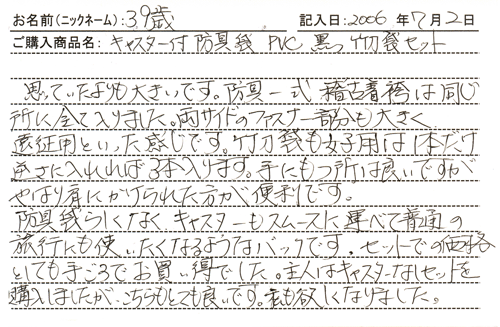 お名前(ニックネーム):39歳 記入日:2006年7月2日
ご購入商品名:キャスター付防具袋 PVC 黒 竹刀袋セット
思っていたよりも大きいです。防具一式 稽古着袴は同じ
所に全て入りました。両サイドのファスナー部分も大きく
遠征用といった感じです。竹刀袋も女子用は1本だけ
逆さに入れれば3本入ります。手にもつ所は良いですが
やはり肩にかけられた方が便利です。
防具袋らしくなく キャスターもスムースに運べて普通の
旅行にも使いたくなるようなバックです。セットでの価格
とても手ごろでお買い得でした。主人はキャスターなしセットを
購入しましたが、こちらもとても良いです。私も欲しくなりました。